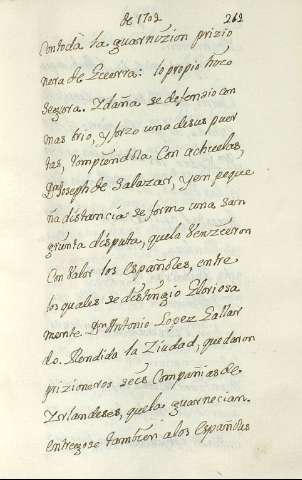 de 1709 262
Con toda la guarnizion prizio
nera de Guerra: lo propio hizo
Segorra. Ydaña se defendio con
mas brio, y forzo una de sus puer
tas, rompiendola Con achuelas,
Dn Joseph de Salazar, y en peque
ña distancia se formo una san
grienta disputa, que la Venzieron
con Valor los Españoles, entre
los quales se distingio Gloriosa
mente. Dn Antonio Lopez Gallar
do. Rendida la Ziudad, quedaron
prizioneros seis Compañias de
Yrlandeses, que la guarnecian.
Entregose tambien a los Españoles